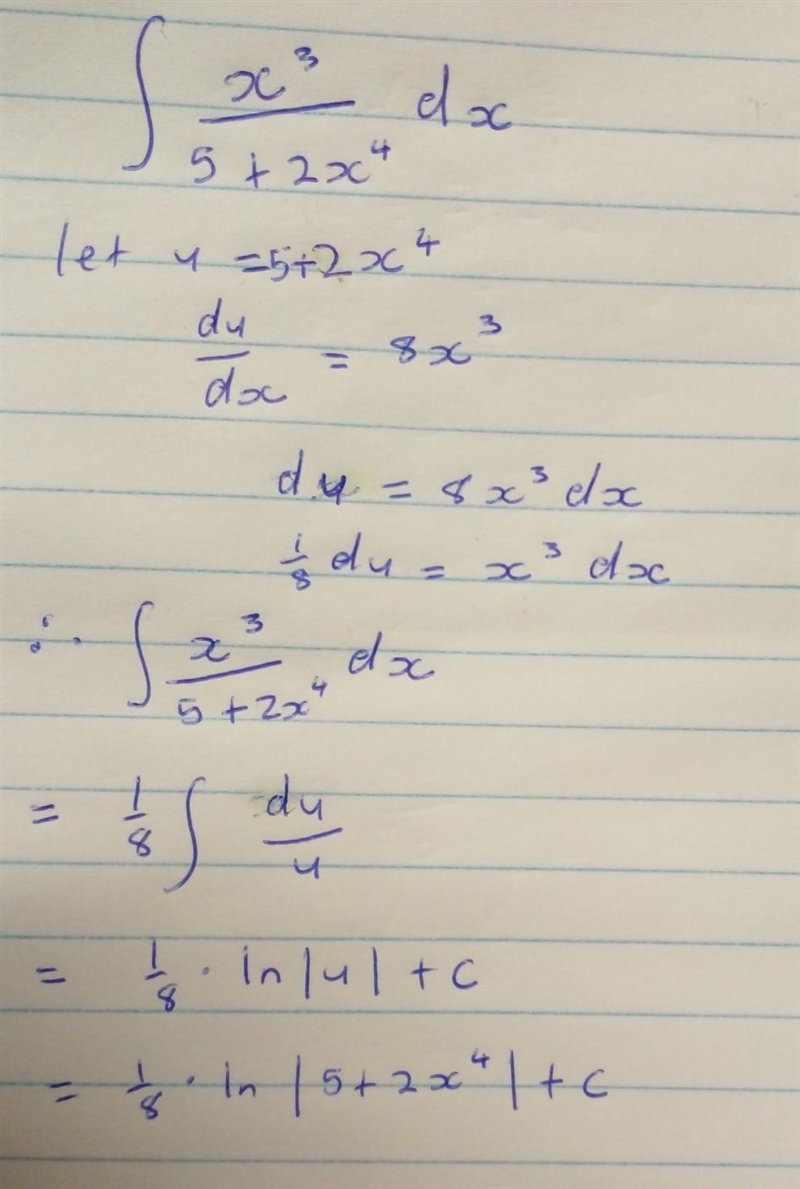 ∫ x³/(5 + 2x⁴) dx
let u = 5+2x⁴
du/dx = 8x³
du = 8x³ dx
1/8 du = x³ dx
∴ ∫ x³/(5 + 2x⁴) dx
= 1/8 ∫ du/u
= 1/8 · ln|u| + c
= 1/8 · ln|5 + 2x⁴| + c